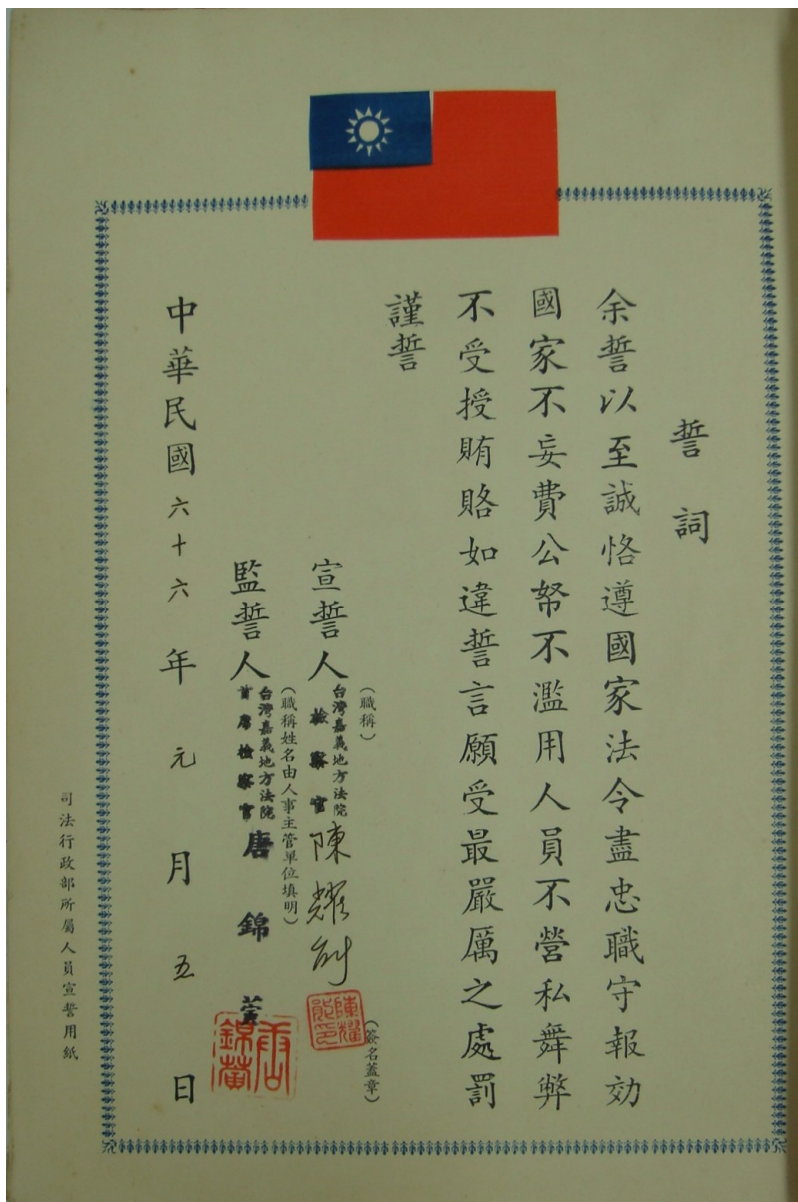 誓詞
余誓以至誠恪遵國家法令盡忠職守報効
國家不妄費公帑不濫用人員不營私舞弊
不受授賄賂如違誓言願受最嚴厲之處罰
謹誓
(職稱)
宣誓人台灣嘉義地方法院檢察官陳耀能
(簽名蓋章)
陳耀能印
(職稱姓名由人事主管單位填明)
監誓人台灣嘉義地方法院首席檢察官唐錦
唐錦
中華民國六十六年元月五日
司法行政部所屬人員宣誓用紙